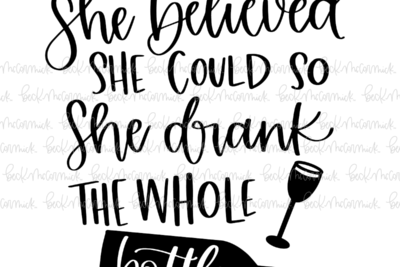 She believed
SHE COULD SO
She drank
THE WHOLE
bottle